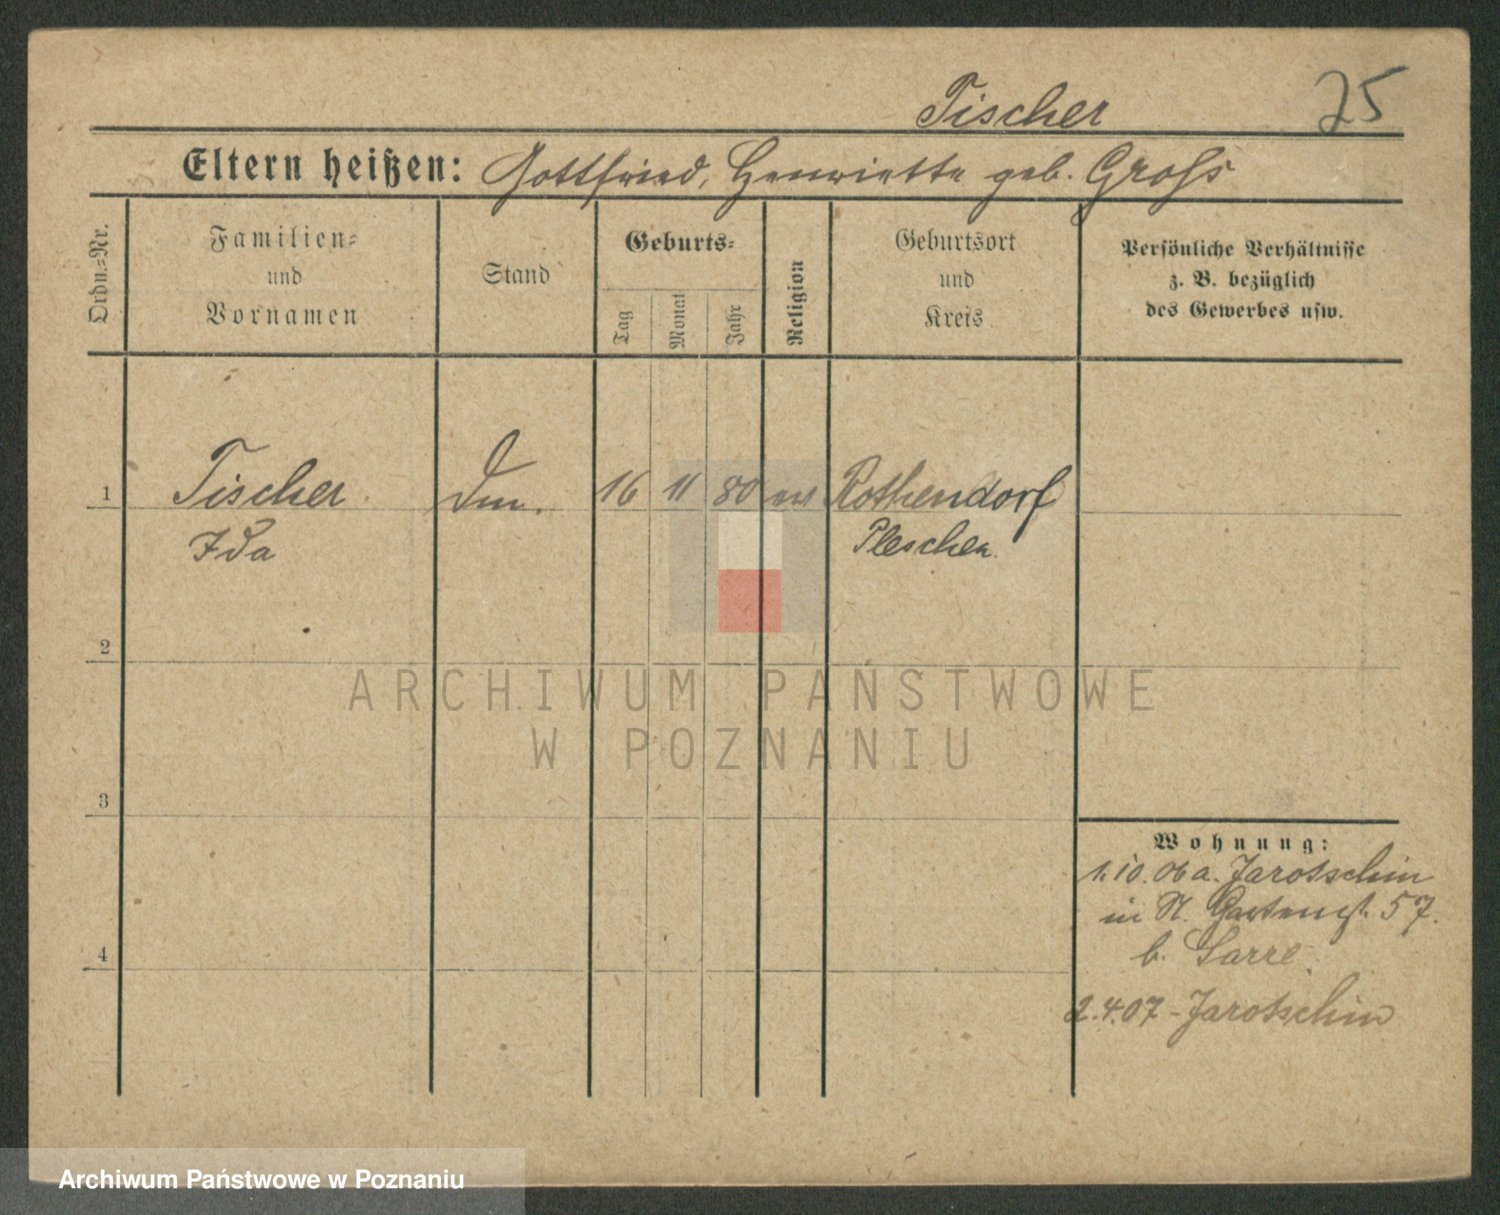 Tischer 75
Eltern heißen: Gottfried, Henriette geb. Groß
Ordn.=Nr.
Familien=
und
Vornamen
Stand
Geburts=
Tag
Monat
Jahr
Religion
Geburtsort
und
Kreis
Persönliche Verhältnisse
z. B. bezüglich
des Gewerbes usw.
1 Tischer 16 11 80 ev Rothendorf
Ida Pleschen
2
ARCHIWUM PAŃSTWOWE
W POZNANIU
3
Wohnung:
1.10.06 a. Jarotschin
in St. Gartenst. 57.
4
b. Sarre
2.4.07 - Jarotschin
Archiwum Państwowe w Poznaniu